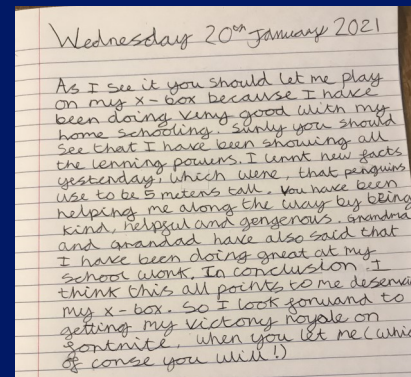 Wednesday 20th January 2021
As I see it you should let me play
on my x-box because I have
been doing very good with my
home schooling. Surly you should
see that I have been showing all
the lenning powers. I lernt new facts
yesterday, which were, that penguins
use to be 5 meters tall. You have been
helping me along the way by being
kind, helpful and gengerous. Grandma
and Grandad have also said that
I have been doing great at my
school work. In conclusion, I
think this all points to me
my x-box. So I look forward to
getting my victory royale on
fontnite, when you let me (
of corse you will!)